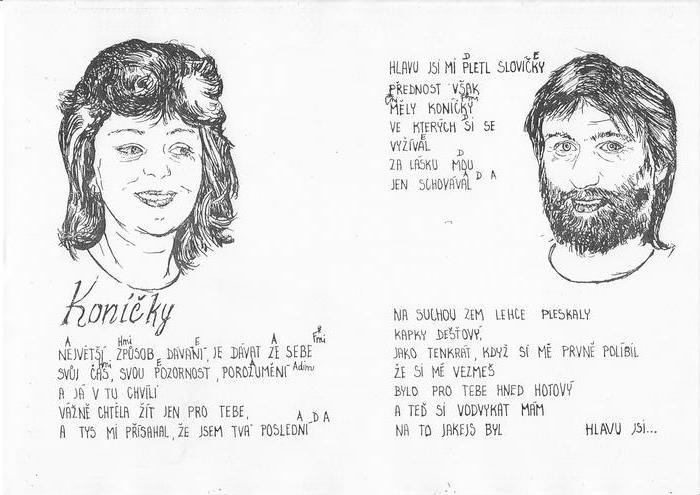 Koníčky
A Hmi E A F#mi
NEJVĚTŠÍ ZPŮSOB DÁVÁNÍ, JE DÁVAT ZE SEBE
Hmi E Adim
SVŮJ ČAS, SVOU POZORNOST, POROZUMĚNÍ
A JÁ V TU CHVÍLI
VÁŽNĚ CHTĚLA ŽÍT JEN PRO TEBE,
A D A
A TYS MI PŘÍSAHAL, ŽE JSEM TVÁ POSLEDNÍ
D E
HLAVU JSI MI PLETL SLOVÍČKY
PŘEDNOST VŠAK
MĚLY KONÍČKY
D
VE KTERÝCH SI SE
E
VYŽÍVAL
D
ZA LÁSKU MOU
A D A
JEN SCHOVÁVAL
NA SUCHOU ZEM LEHCE PLESKALY
KAPKY DEŠŤOVÝ,
JAKO TENKRÁT, KDYŽ SI MĚ PRVNĚ POLÍBIL
ŽE SI MĚ VEZMEŠ
BYLO PRO TEBE HNED HOTOVÝ
A TEĎ SI VODVYKAT MÁM
NA TO JAKEJS BYL
HLAVU JSI...